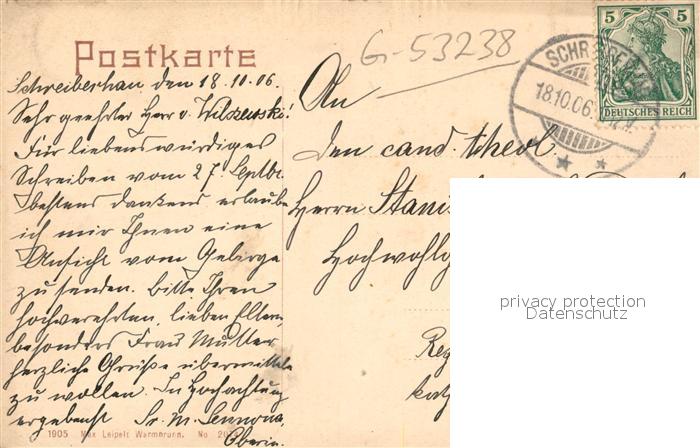 Postkarte
G-53238
Schreiberhau den 18.10.06.
Sehr geehrter Herr v. Wilszewski!
Für liebenswürdiges
Schreiben vom 27. Septbr.
bestens dankend erlaube
ich mir Ihnen eine
Ansicht vom Gebirge
zu senden. Bitte Ihren
hochverehrten, lieben Eltern,
besonders Frau Mutter
herzliche Grüße übermitteln
zu wollen. In Hochachtung
ergebenst Sr. M. Sennona,
Oberin.
1905 Max Leipelt Warmbrunn. No
An
den cand. theol.
Herrn Stanis
Hochwohlg
Reg
kath
SCHR
18.10.06.
5 5
DEUTSCHES REICH
privacy protection
Datenschutz